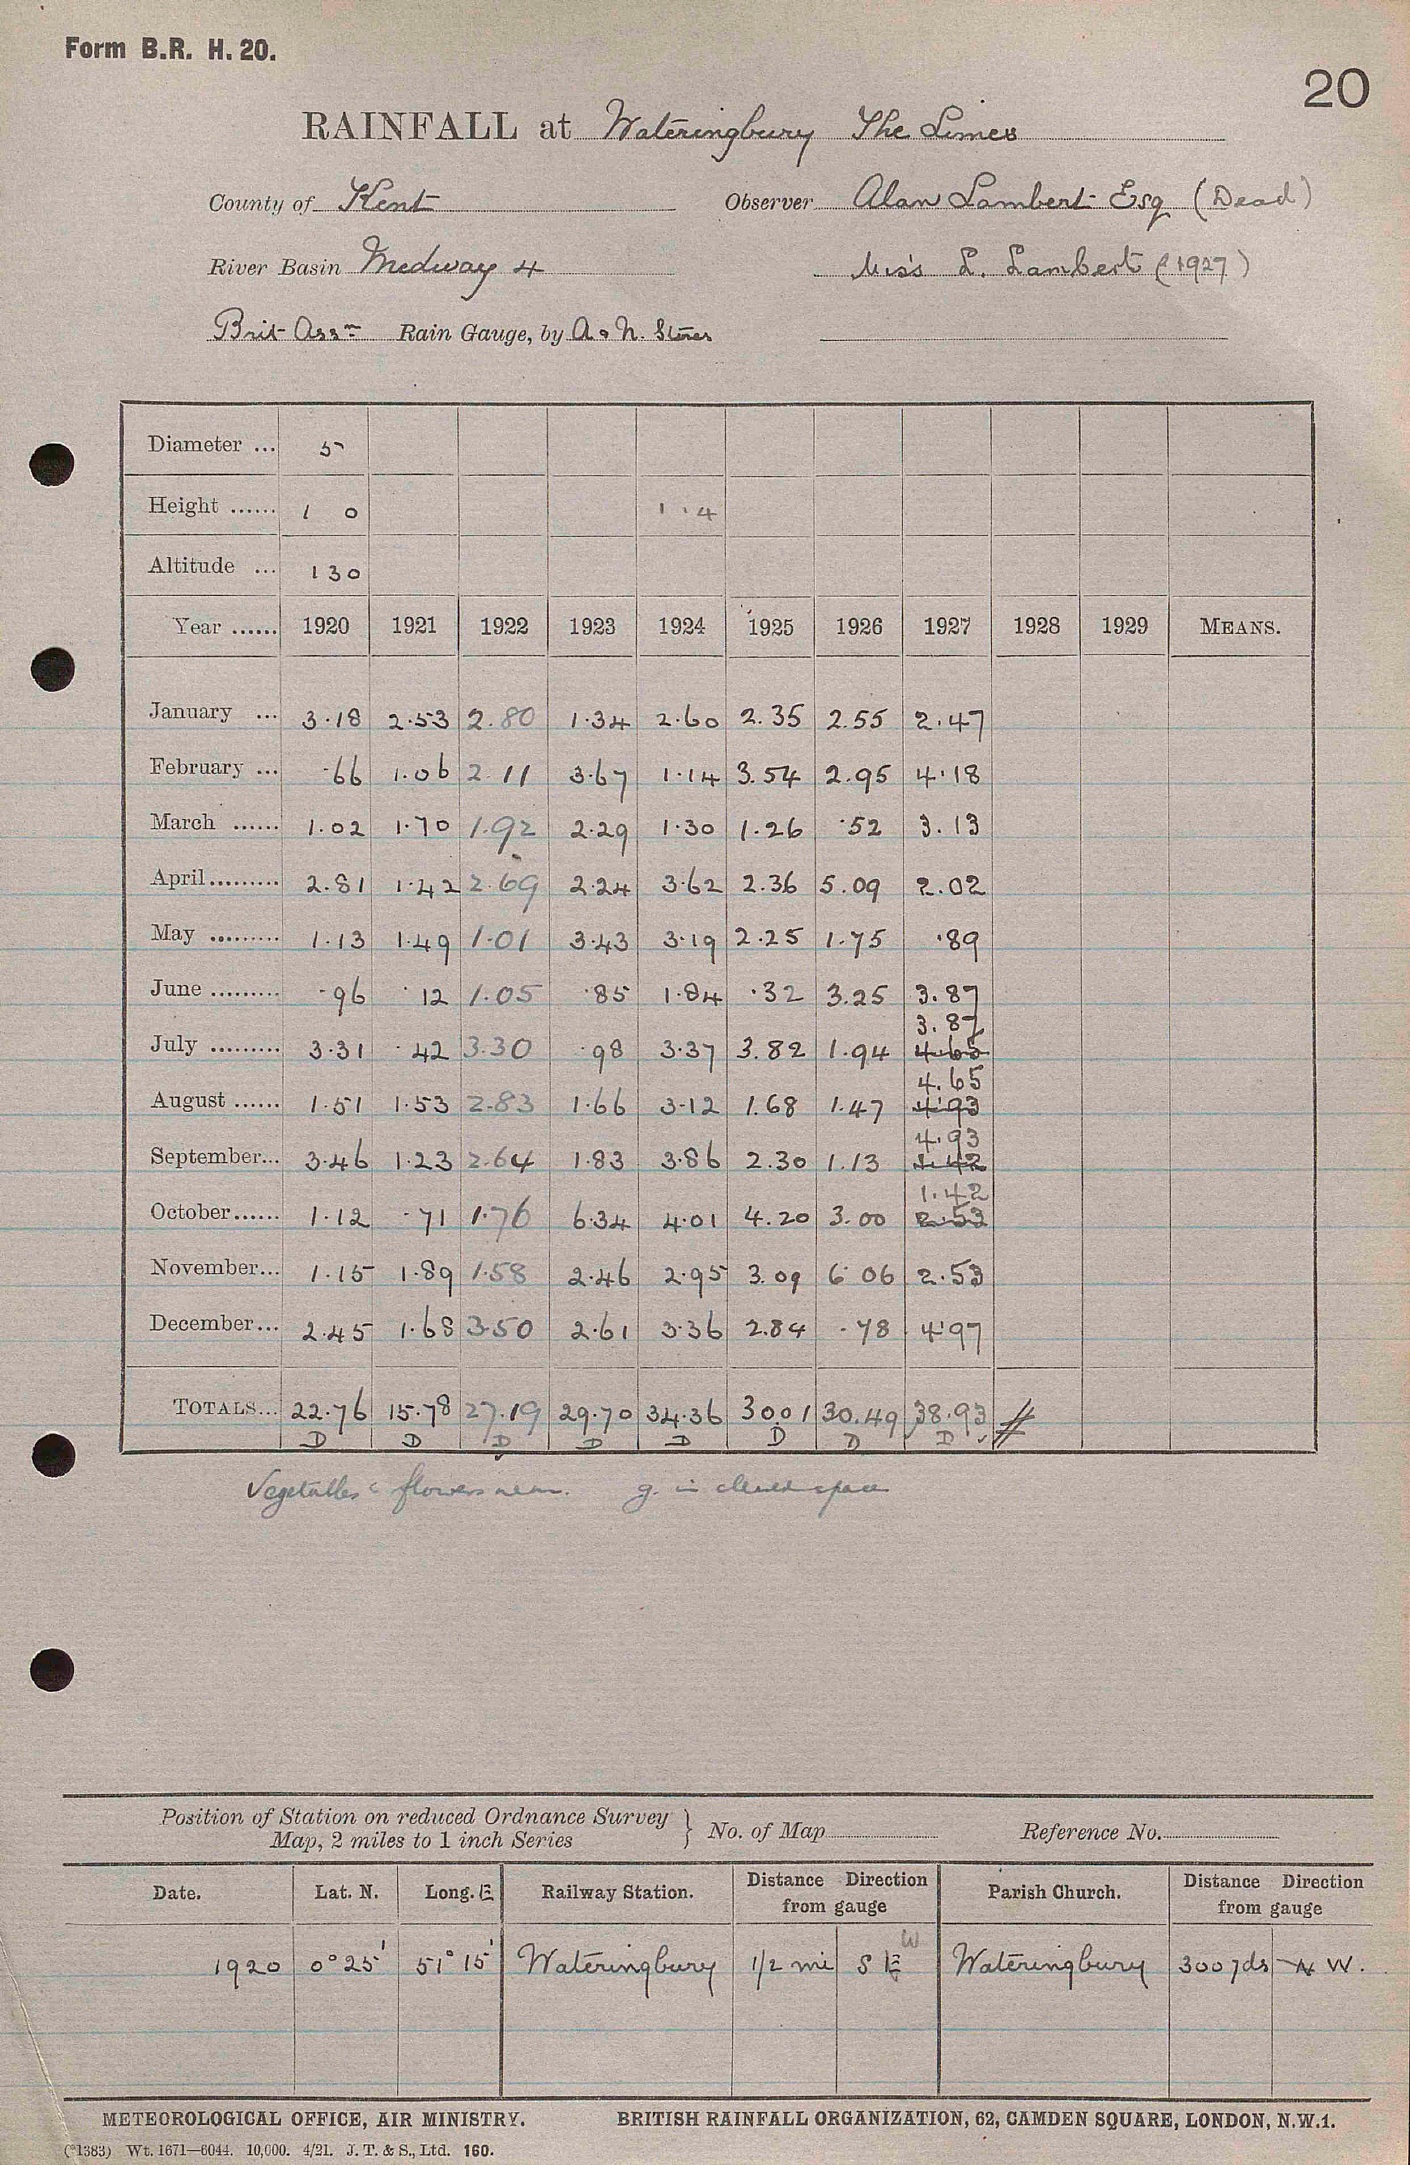 Form B.R. H. 20.
20
RAINFALL at Wateringbury The Limes
County of Kent Observer Alan Lambert Esq (Dead)
River Basin Medway 4 Miss L. Lambert (1927)
Brit Assn Rain Gauge, by A & N. Stores
Diameter ... 5
Height ...... 1 0 1 . 4
Altitude ... 130
Year ...... 1920 1921 1922 1923 1924 1925 1926 1927 1928 1929 MEANS.
January ... 3.18 2.53 2.80 1.34 2.60 2.35 2.55 2.47
February ... .66 1.06 2.11 3.67 1.14 3.54 2.95 4.18
March ...... 1.02 1.70 1.92 2.29 1.30 1.26 .52 3.13
April......... 2.81 1.42 2.69 2.24 3.62 2.36 5.09 2.02
May ......... 1.13 1.49 1.01 3.43 3.19 2.25 1.75 .89
June ......... .96 .12 1.05 .85 1.84 .32 3.25 3.87
3.87
July ......... 3.31 .42 3.30 .98 3.37 3.82 1.94 4.65
4.65
August ...... 1.51 1.53 2.83 1.66 3.12 1.68 1.47 4.93
4.93
September... 3.46 1.23 2.64 1.83 3.86 2.30 1.13 1.42
1.42
October...... 1.12 .71 1.76 6.34 4.01 4.20 3.00 2.53
November... 1.15 1.89 1.58 2.46 2.95 3.09 6.06 2.53
December... 2.45 1.68 3.50 2.61 3.36 2.84 .78 4.97
TOTALS... 22.76 15.78 27.19 29.70 34.36 30.01 30.49 38.93
D D D D D D D D
Vegetables & flowers near. g. in cleared space
Position of Station on reduced Ordnance Survey
Map, 2 miles to 1 inch Series } No. of Map Reference No.
Date. Lat. N. Long. E Railway Station. Distance Direction from gauge Parish Church. Distance Direction from gauge
W
1920 0° 25' 51° 15' Wateringbury 1/2 mi S E Wateringbury 300 yds N W.
METEOROLOGICAL OFFICE, AIR MINISTRY. BRITISH RAINFALL ORGANIZATION, 62, CAMDEN SQUARE, LONDON, N.W.1.
(*1383) Wt. 1671—6044. 10,000. 4/21. J. T. & S., Ltd. 160.